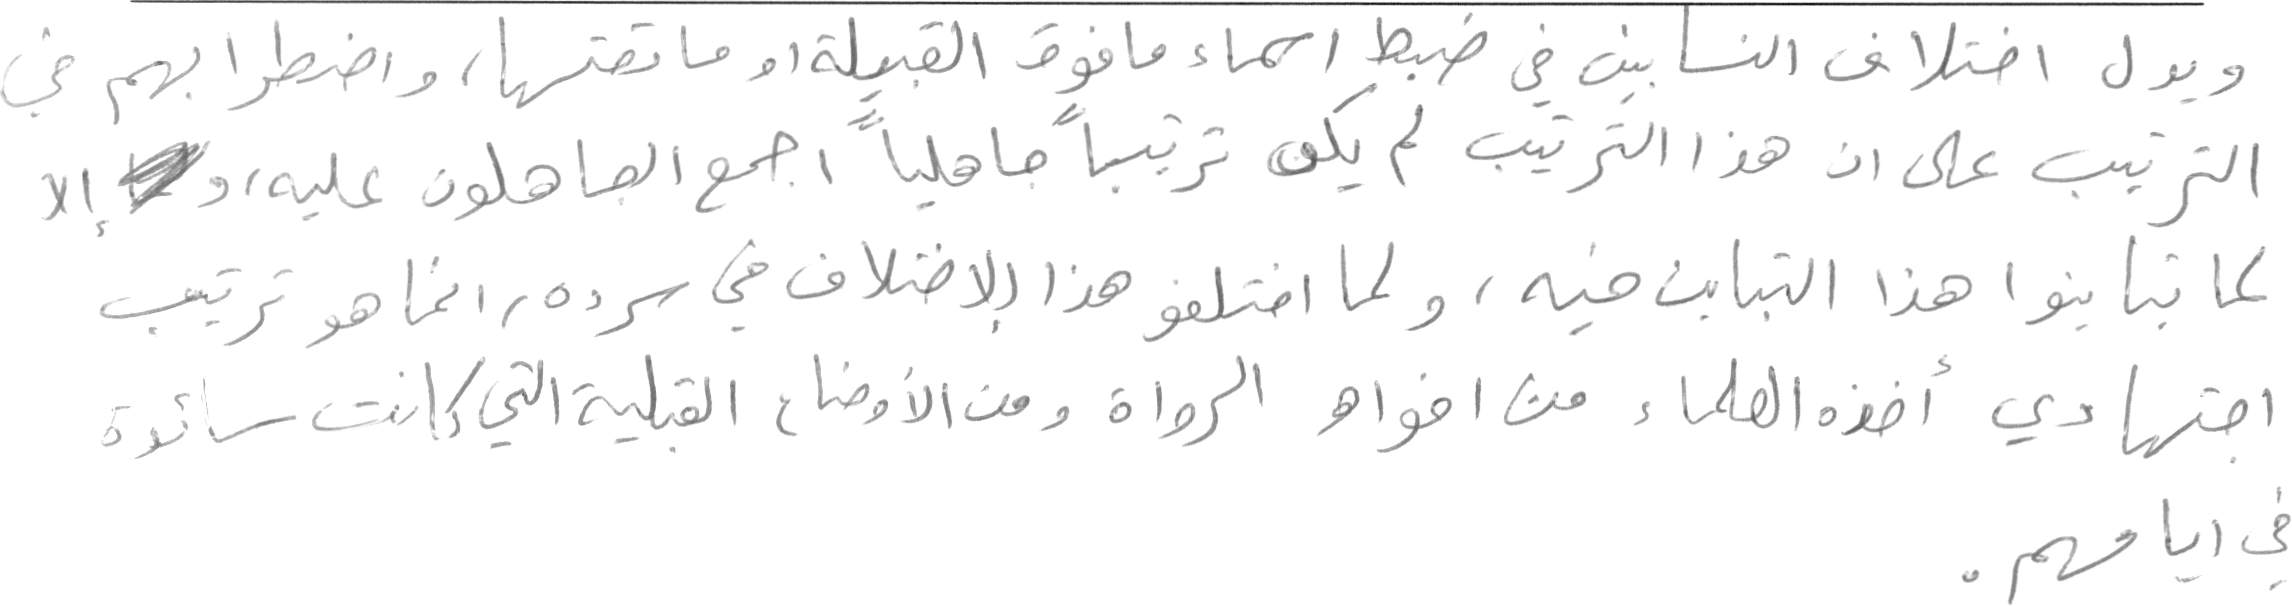 ويدل اختلاف النسابين في ضبط اسماء ما فوق القبيلة او ما تحتها، واضطرابهم في
الترتيب على ان هذا الترتيب لم يكن ترتيباً جاهلياً اجمع الجاهلون عليه، و إلا
لما تباينوا هذا التباين فيه، ولما اختلفو هذا الاختلاف في سرده، انما هو ترتيب
اجتهادي أخذه العلماء من افواه الرواة ومن الأوضاع القبلية التي كانت سائدة
في ايامهم.